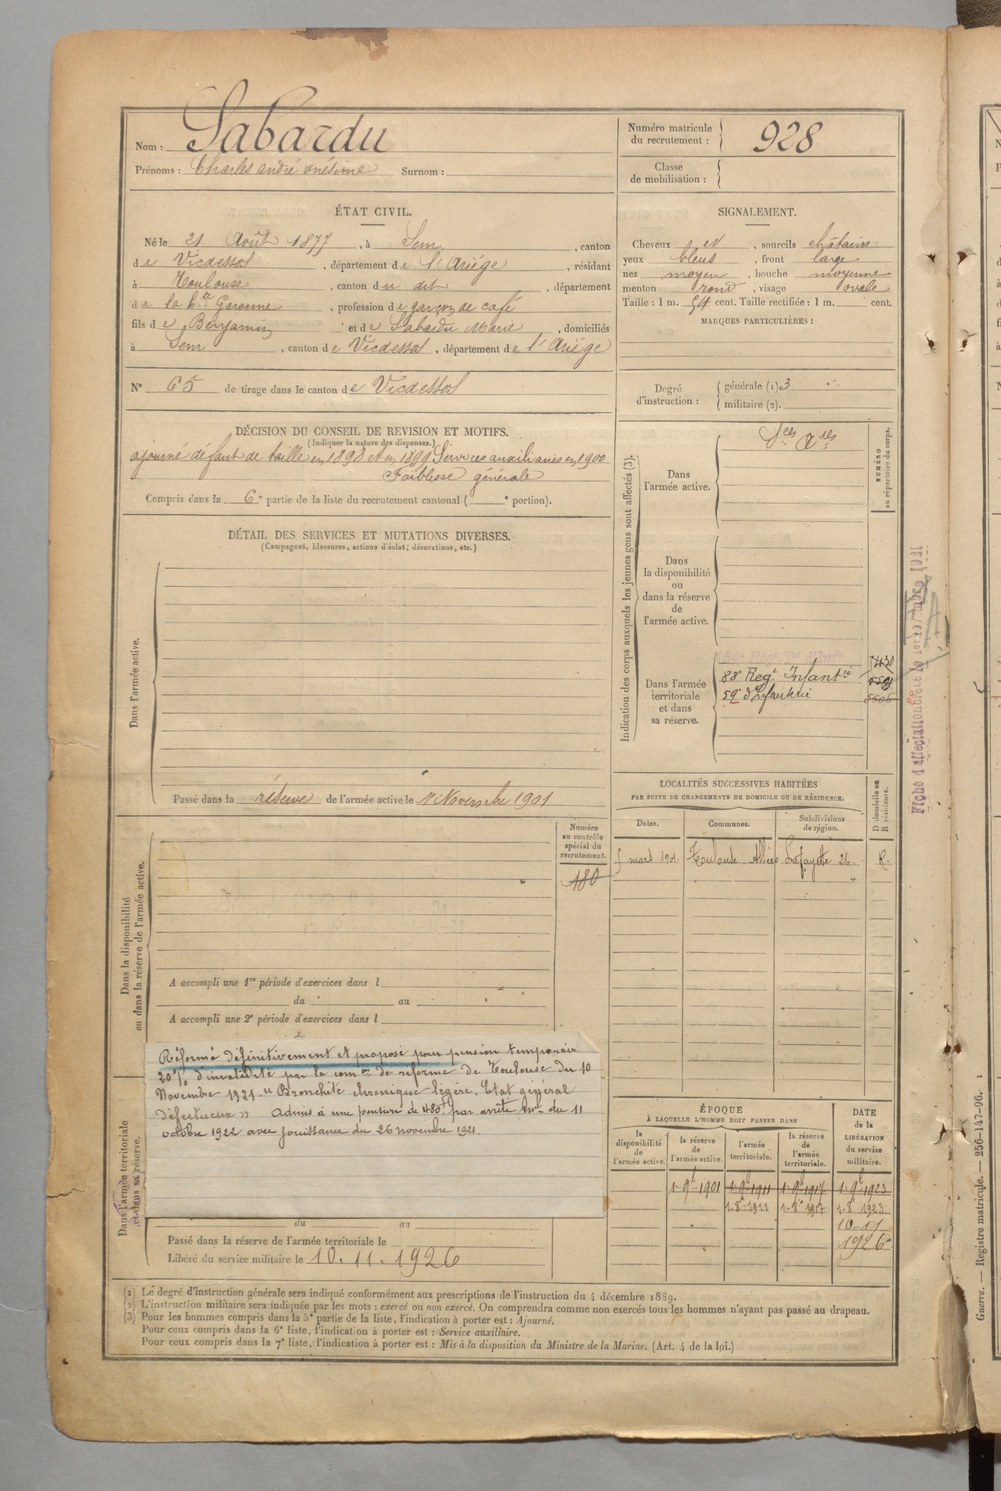 Nom : Sabardu
Prénoms : Charles andré onésime Surnom :
Numéro matricule du recrutement : 928
Classe de mobilisation :
ÉTAT CIVIL.
Né le 21 Août 1877, à Sem, canton
de Vicdessos, département de l'Ariége, résidant
à Toulouse, canton du dit, département
de la hte Garonne, profession de garçon de café
fils de Benjamin et de Sabardu Marie, domiciliés
à Sem, canton de Vicdessos, département de l'Ariége
N° 65 de tirage dans le canton de Vicdessos
SIGNALEMENT.
Cheveux et, sourcils châtains
yeux bleus, front large
nez moyen, bouche moyenne
menton rond, visage ovale
Taille : 1 m. 54 cent. Taille rectifiée : 1 m. cent.
MARQUES PARTICULIÈRES :
Degré d'instruction : générale (1) 3
militaire (2).
DÉCISION DU CONSEIL DE REVISION ET MOTIFS.
(Indiquer la nature des dispenses.)
ajourné défaut de taille en 1898 et en 1899 Services auxiliaires en 1900
Faiblesse générale
Compris dans la 6e partie de la liste du recrutement cantonal ( e portion).
DÉTAIL DES SERVICES ET MUTATIONS DIVERSES.
(Campagnes, blessures, actions d'éclat, décorations, etc.)
Dans l'armée active.
Passé dans la réserve de l'armée active le 1r Novembre 1901
Indication des corps auxquels les jeunes gens sont affectés (3).
NUMÉRO au répertoire du corps.
Dans l'armée active.
Dans la disponibilité ou dans la réserve de l'armée active.
Dans l'armée territoriale et dans sa réserve.
88e Regt Infantie
59e d'Infanterie
Fiche d'affectation
LOCALITÉS SUCCESSIVES HABITÉES
PAR SUITE DE CHANGEMENTS DE DOMICILE OU DE RÉSIDENCE.
Dates. Communes. Subdivisions de région. D domicile ou R résidence.
mars 190 Toulouse Allées Lafayette 26. R.
Dans la disponibilité ou dans la réserve de l'armée active.
Numéro au contrôle spécial du recrutement.
480
A accompli une 1re période d'exercices dans l
du au
A accompli une 2e période d'exercices dans l
Réformé définitivement et proposé pour pension temporaire
20% d'invalidité par la comon de réforme de Toulouse du 10
Novembre 1921 "Bronchite chronique légère. Etat général
défectueux" Admis à une pension de 480f par arrêté du 11
octobre 1922 avec jouissance du 26 novembre 1921.
Dans l'armée territoriale et dans sa réserve.
du au
Passé dans la réserve de l'armée territoriale le
Libéré du service militaire le 10.11.1926
ÉPOQUE
À LAQUELLE L'HOMME DOIT PASSER DANS
la disponibilité de l'armée active.
la réserve de l'armée active.
l'armée territoriale.
la réserve de l'armée territoriale.
DATE de la LIBÉRATION du service militaire.
1r 9bre 1901 1r 9bre 1911 1r 9bre 1917 1r 9bre 1923
1r 8bre 1911 1r 8bre 1917 1r 8bre 1923
10-11
1926
(1) Le degré d'instruction générale sera indiqué conformément aux prescriptions de l'instruction du 4 décembre 1889.
(2) L'instruction militaire sera indiquée par les mots : exercé ou non exercé. On comprendra comme non exercés tous les hommes n'ayant pas passé au drapeau.
(3) Pour les hommes compris dans la 5e partie de la liste, l'indication à porter est : Ajourné.
Pour ceux compris dans la 6e liste, l'indication à porter est : Service auxiliaire.
Pour ceux compris dans la 7e liste, l'indication à porter est : Mis à la disposition du Ministre de la Marine. (Art. 4 de la loi.)
Guerre. — Registre matricule. — 256-147-96.